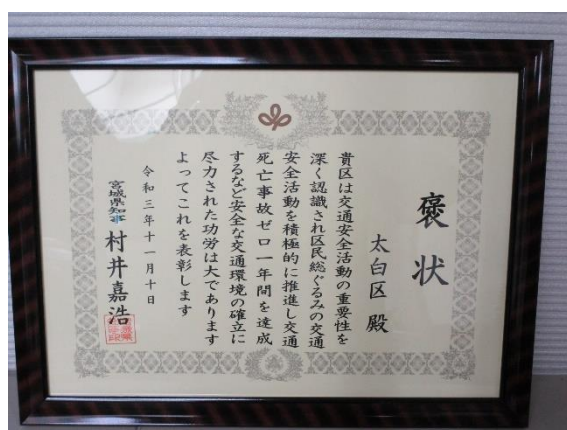 褒状
太白区殿
貴区は交通安全活動の重要性を
深く認識され区民総ぐるみの交通
安全活動を積極的に推進し交通
死亡事故ゼロ一年間を達成
するなど安全な交通環境の確立に
尽力された功労は大であります
よってこれを表彰します
令和三年十一月十日
宮城県知事 村井嘉浩